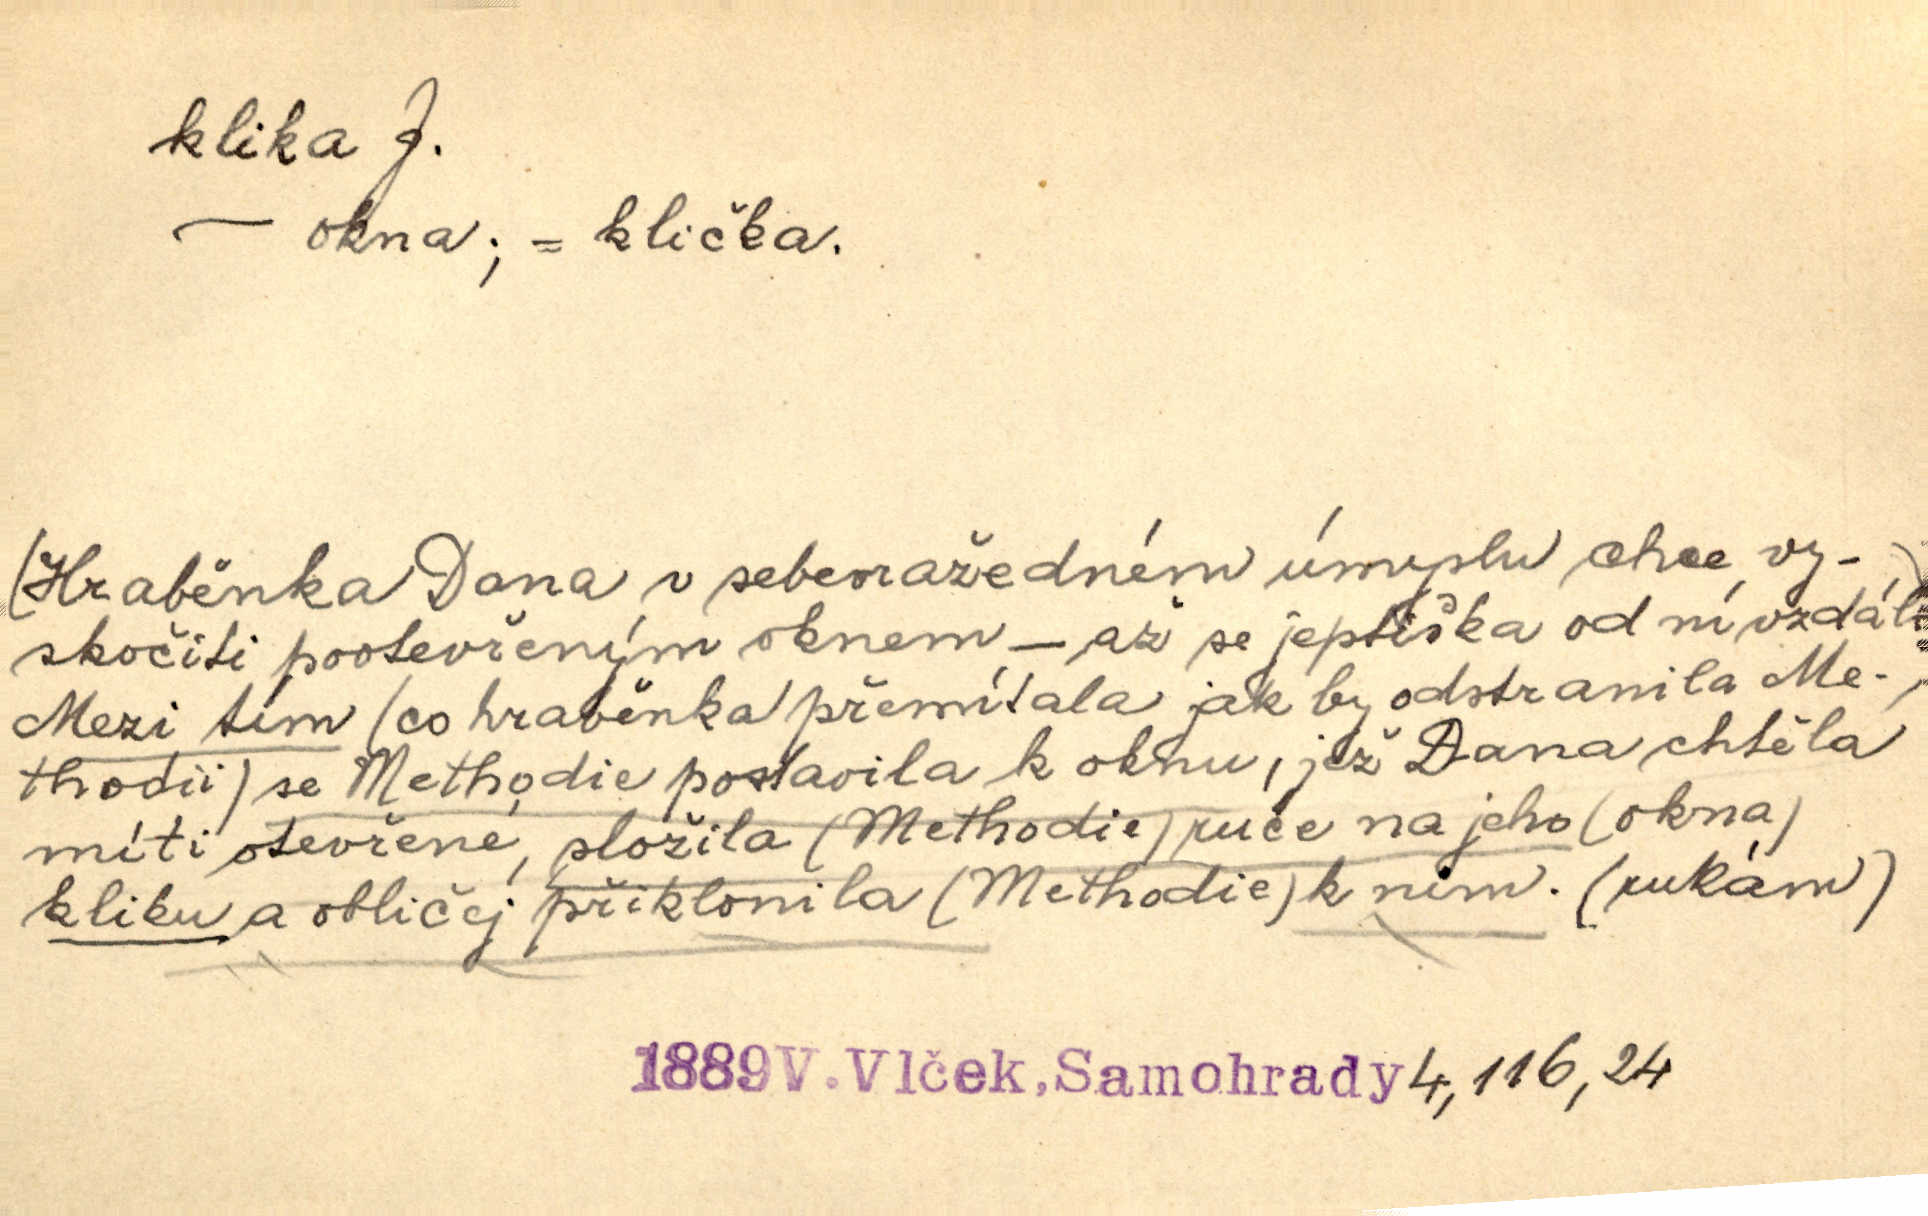 klika f.
— okna; = klička.
(Hraběnka Dana v sebevražedném úmyslu chce vy-
skočiti pootevřeným oknem – až se jeptiška od ní vzdálí)
Mezi tím (co hraběnka přemítala jak by odstranila Me-
thodii) se Methodie postavila k oknu, jež Dana chtěla
míti otevřené, položila (Methodie) ruce na jeho (okna)
kliku a obličej přiklonila (Methodie) k nim. (rukám)
1889 V. Vlček, Samohrady 4, 116, 24